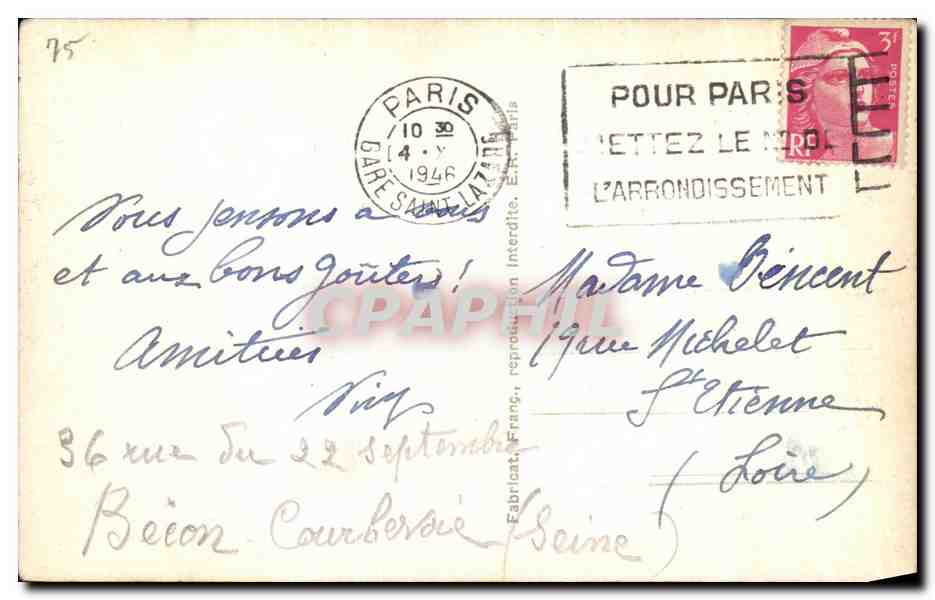 75
PARIS
10 30
4 · X
1946
GARE SAINT-LAZARE
POUR PARIS
METTEZ LE N° DE
L'ARRONDISSEMENT
3F
POSTES
RF
Nous pensons à vous
et aux bons goûters !
Amitiés
36 rue du 22 septembre
Bécon Courbevoie (Seine)
Fabricat. Franç., reproduction Interdite. E. R. Paris
CPAPHIL
Madame Béncent
19 rue Michelet
St Etienne
(Loire)